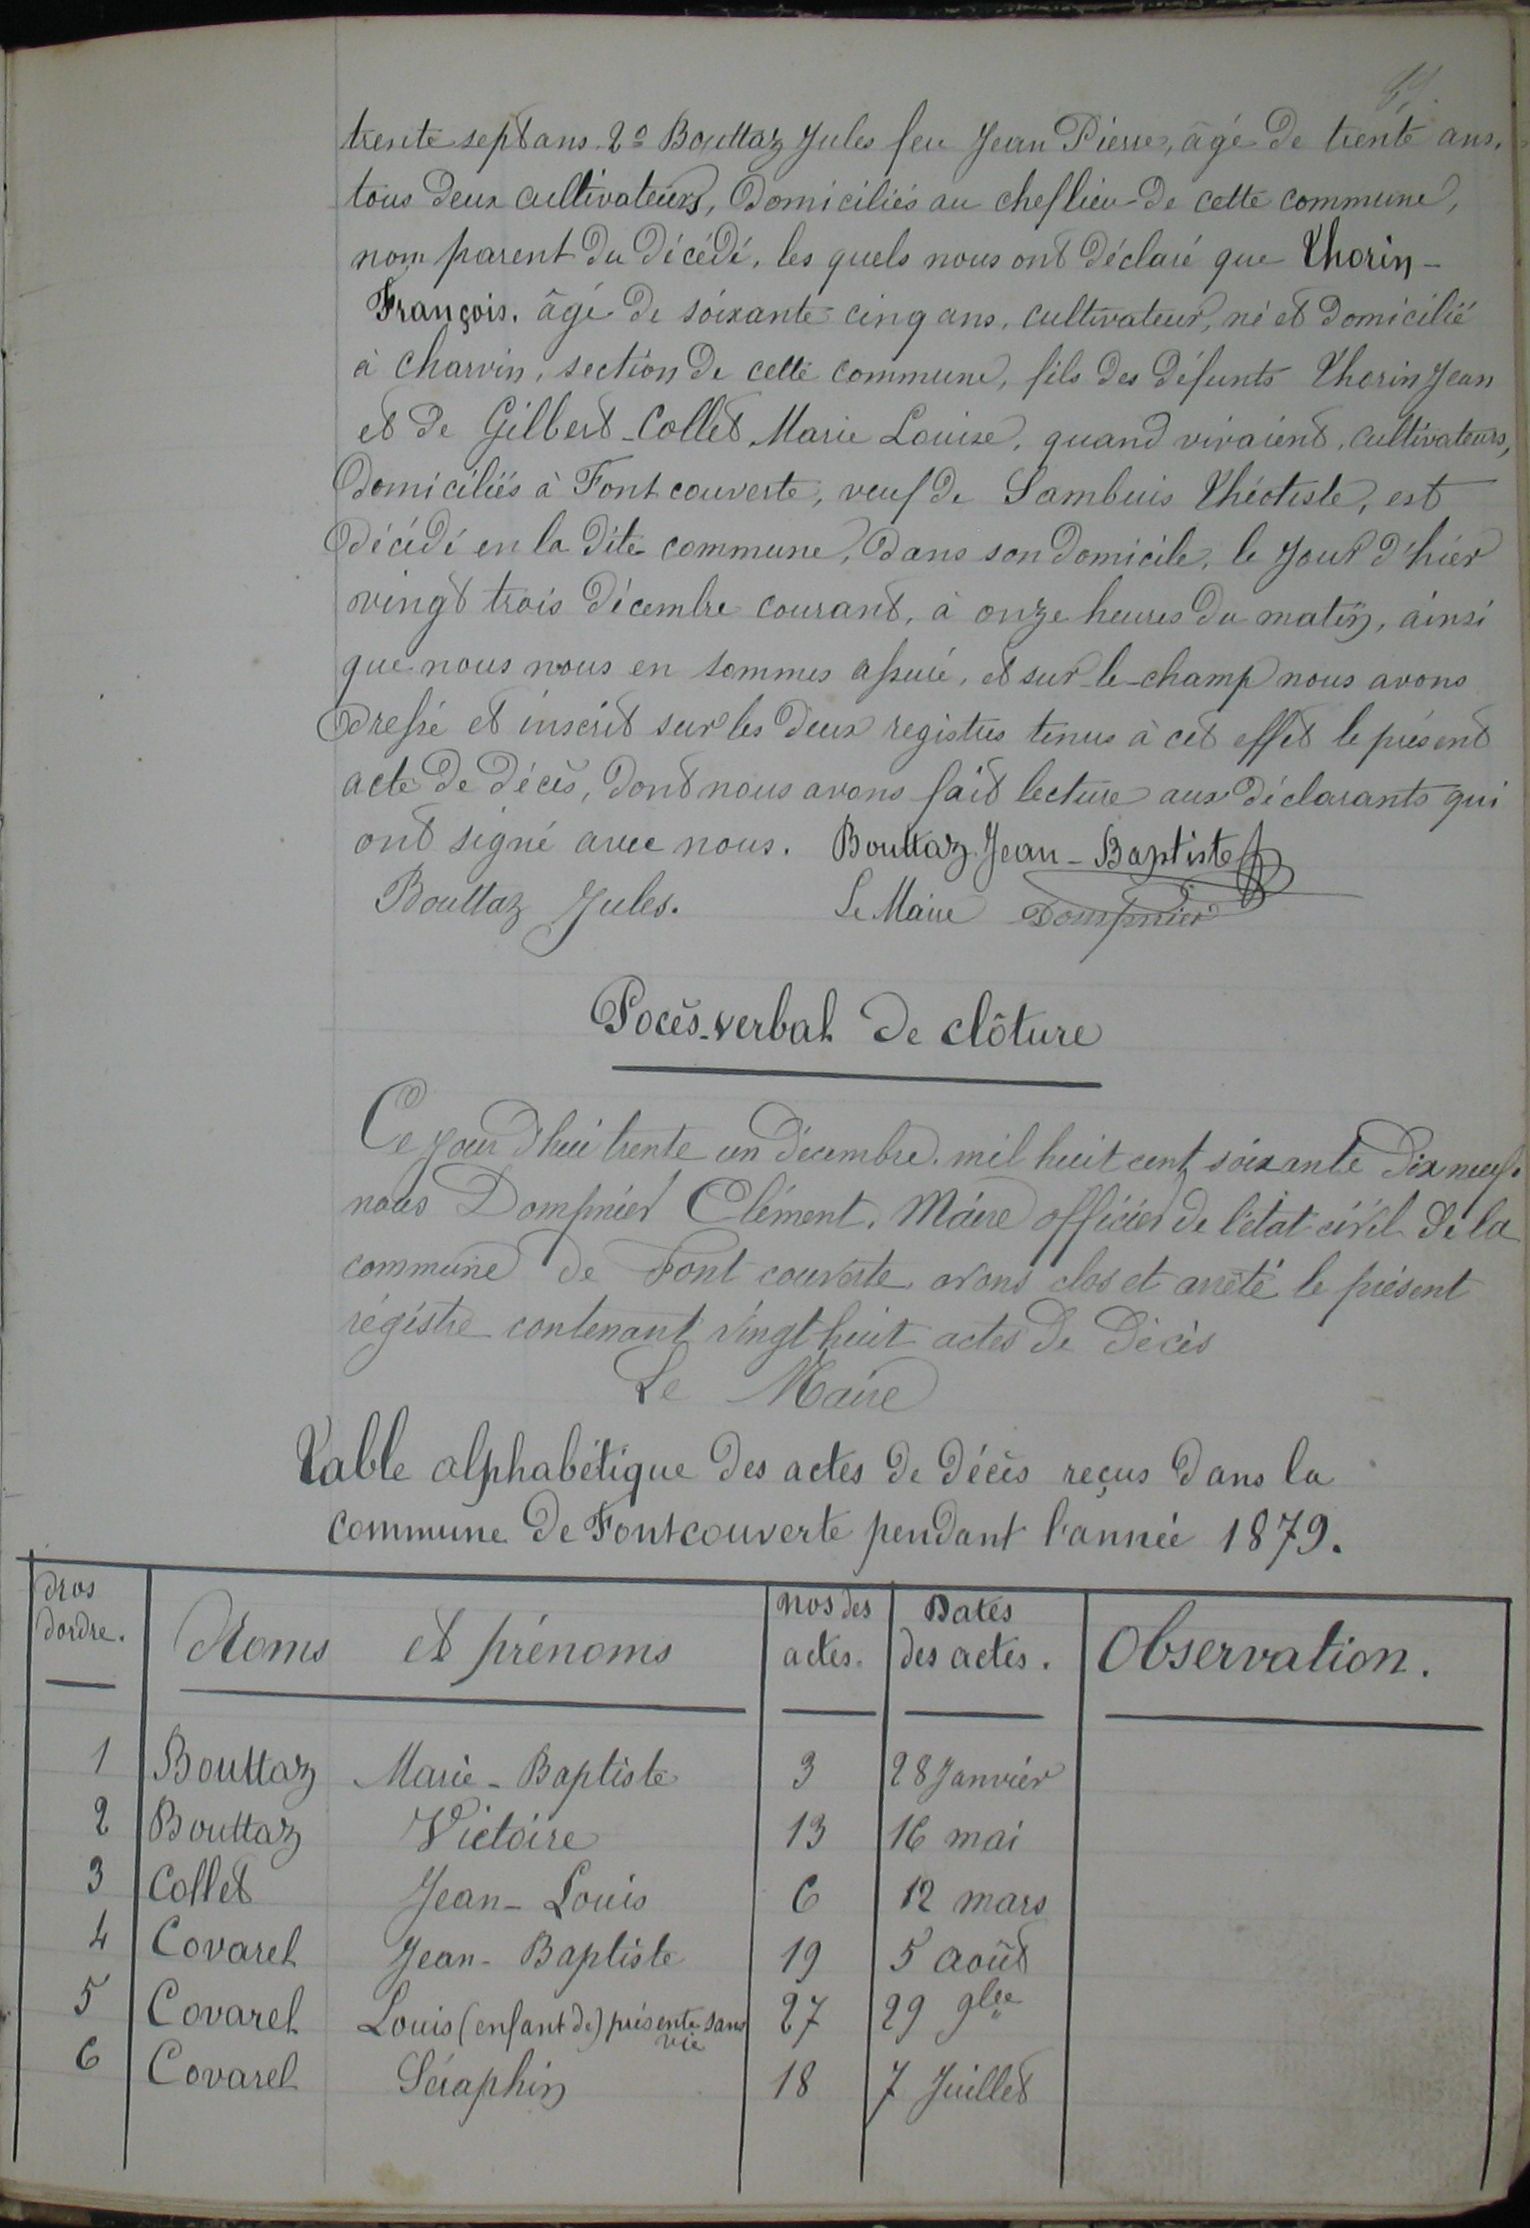 trente sept ans. 2º Bouttaz Jules feu Jean Pierre, âgé de trente ans,
tous deux cultivateurs, domiciliés au chef lieu de cette commune,
nom parent du décédé, les quels nous ont déclaré que Thorin-
François, âgé de soixante cinq ans, cultivateur, né et domicilié
à Charvin, section de cette commune, fils des défunts Thorin Jean
et de Gilbert-Collet Marie Louise, quand vivaient, cultivateurs,
domiciliés à Fontcouverte, veuf de Sambuis Théotiste, est
décédé en la dite commune, dans son domicile, le jour d'hier
vingt trois décembre courant, à onze heures du matin, ainsi
que nous nous en sommes assuré, et sur-le-champ nous avons
dressé et inscrit sur les deux registres tenus à cet effet le présent
acte de décès, dont nous avons fait lecture aux déclarants qui
ont signé avec nous. Bouttaz Jean-Baptiste
Bouttaz Jules. Le Maire Dompnier
Pocès-verbal de clôture
Ce jour d'hui trente un décembre mil huit cent soixante dix neuf.
nous Dompnier Clément, Maire officier de l'état civil de la
commune de Font couverte avons clos et arrêté le présent
régistre contenant vingt huit actes de décès
Le Maire
Table alphabétique des actes de décès reçus dans la
commune de Fontcouverte pendant l'année 1879.
dordre. Noms et prénoms nos des actes. Dates des actes. Observation.
1 Bouttaz Marie-Baptiste 3 28 Janvier
2 Bouttaz Victoire 13 16 mai
3 Collet Jean-Louis 6 12 mars
4 Covarel Jean-Baptiste 19 5 août
5 Covarel Louis (enfant de) présente sans vie 27 29 9bre
6 Covarel Séraphin 18 7 Juillet